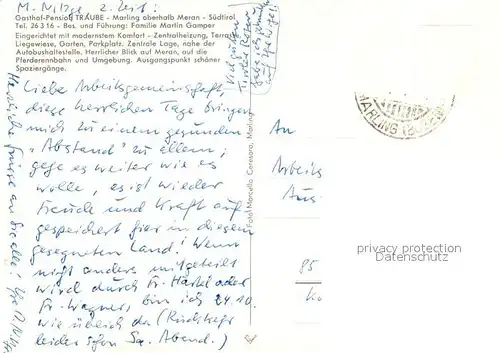 M. Nitze z. Zeit:
Gasthof-Pension TRAUBE - Marling oberhalb Meran - Südtirol
Tel. 26316 - Bes. und Führung: Familie Martin Gamper
Eingerichtet mit modernstem Komfort - Zentralheizung, Terras
Liegewiese, Garten, Parkplatz. Zentrale Lage, nahe der
Autobushaltestelle. Herrlicher Blick auf Meran, auf die
Pferderennbahn und Umgebung. Ausgangspunkt schöner
Spaziergänge.
Liebe Arbeitsgemeinschaft,
diese herrlichen Tage bringen
mich zu einem gesunden
"Abstand" zu allem;
gehe es weiter wie es
wolle, es ist wieder
Freude und Kraft auf-
gespeichert hier in diesem
gesegneten Land! Wenn
nicht anders mitgeteilt
wird durch Fr. Härtel oder
Fr. Wagner, bin ich 24.10.
wie üblich da (Rückkehr
leider schon Sa. Abend.)
Herzliche Grüsse an Sie alle! Ihre
Foto Marcello Ceresara, Marling
MARLING
An
Arbeits
Aus
85
privacy protection
Datenschutz